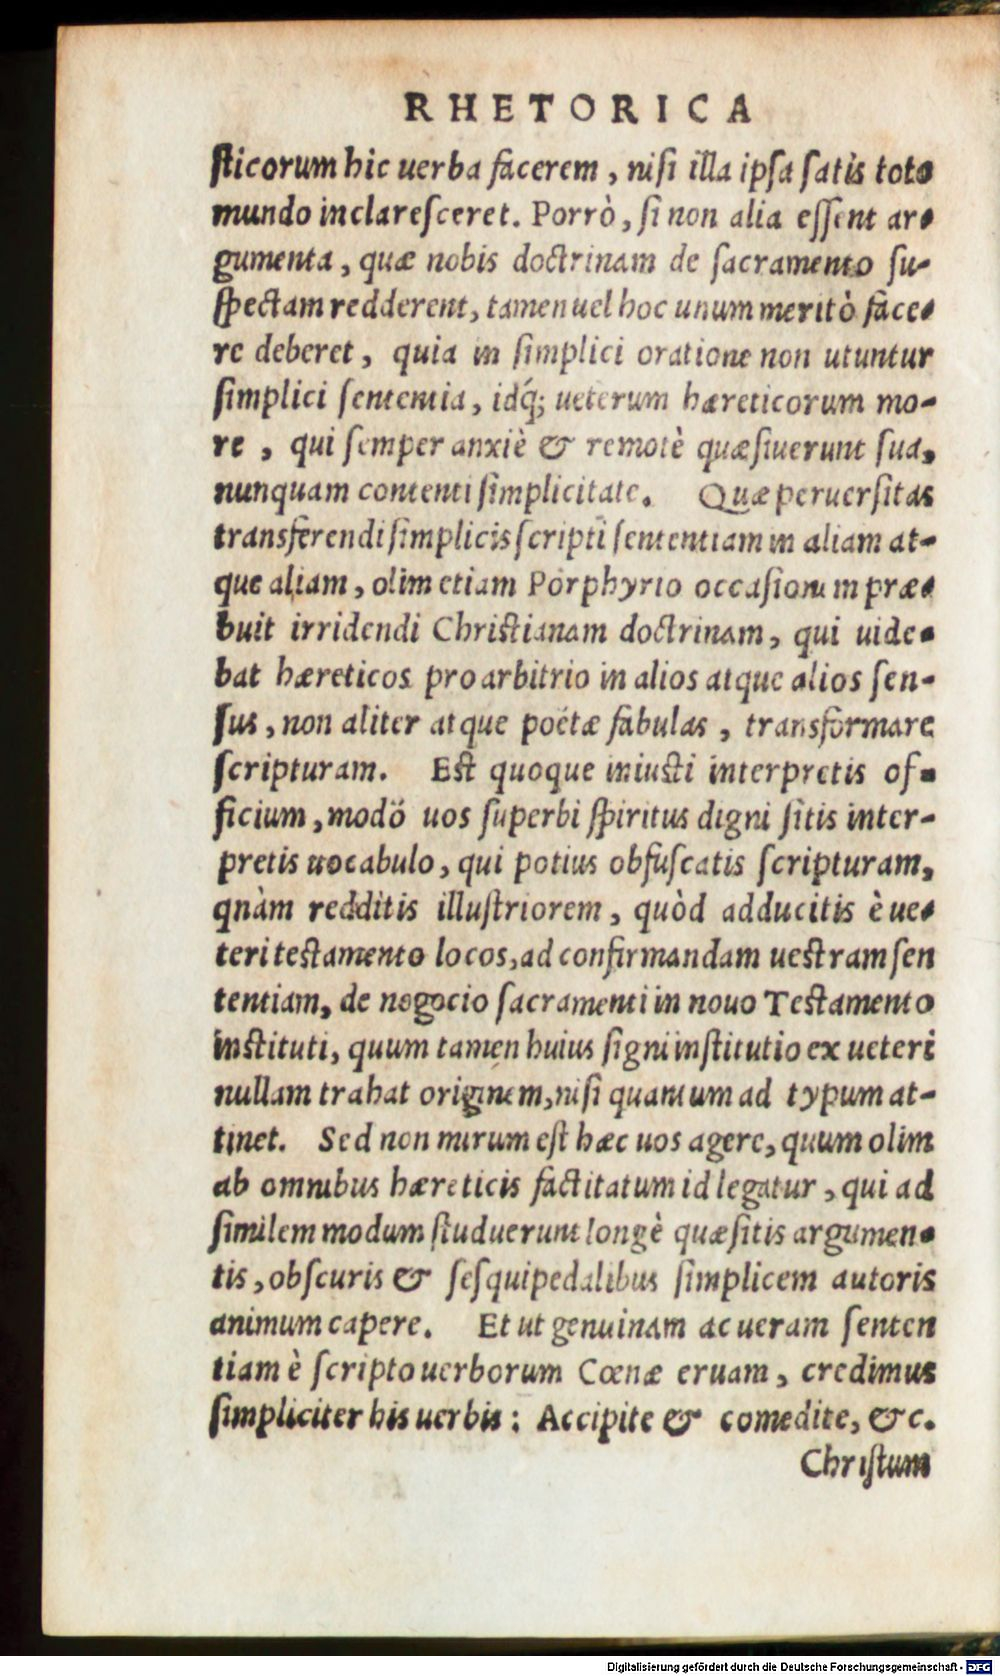 RHETORICA
sticorum hic uerba facerem, nisi illa ipsa satis toto
mundo inclaresceret. Porrò, si non alia essent ar-
gumenta, quæ nobis doctrinam de sacramento su-
spectam redderent, tamen uel hoc unum meritò face-
re deberet, quia in simplici oratione non utuntur
simplici sententia, idq́; ueterum hæreticorum mo-
re, qui semper anxiè & remotè quæsiuerunt sua,
nunquam contenti simplicitate. Quæ peruersitas
transferendi simplicis scripti sententiam in aliam at-
que aliam, olim etiam Porphyrio occasionem præ-
buit irridendi Christianam doctrinam, qui uide-
bat hæreticos pro arbitrio in alios atque alios sen-
sus, non aliter atque poëtæ fabulas, transformare
scripturam. Est quoque iniusti interpretis of-
ficium, modò uos superbi spiritus digni sitis inter-
pretis uocabulo, qui potius obfuscatis scripturam,
qnàm redditis illustriorem, quòd adducitis è ue-
teri testamento locos, ad confirmandam uestram sen
tentiam, de negocio sacramenti in nouo Testamento
instituti, quum tamen huius signi institutio ex ueteri
nullam trahat originem, nisi quantum ad typum at-
tinet. Sed non mirum est hæc uos agere, quum olim
ab omnibus hæreticis factitatum id legatur, qui ad
similem modum studuerunt longè quæsitis argumen-
tis, obscuris & sesquipedalibus simplicem autoris
animum capere. Et ut genuinam ac ueram senten
tiam è scripto uerborum Cœnæ eruam, credimus
simpliciter his uerbis: Accipite & comedite, &c.
Christum
Digitalisierung gefördert durch die Deutsche Forschungsgemeinschaft - DFG